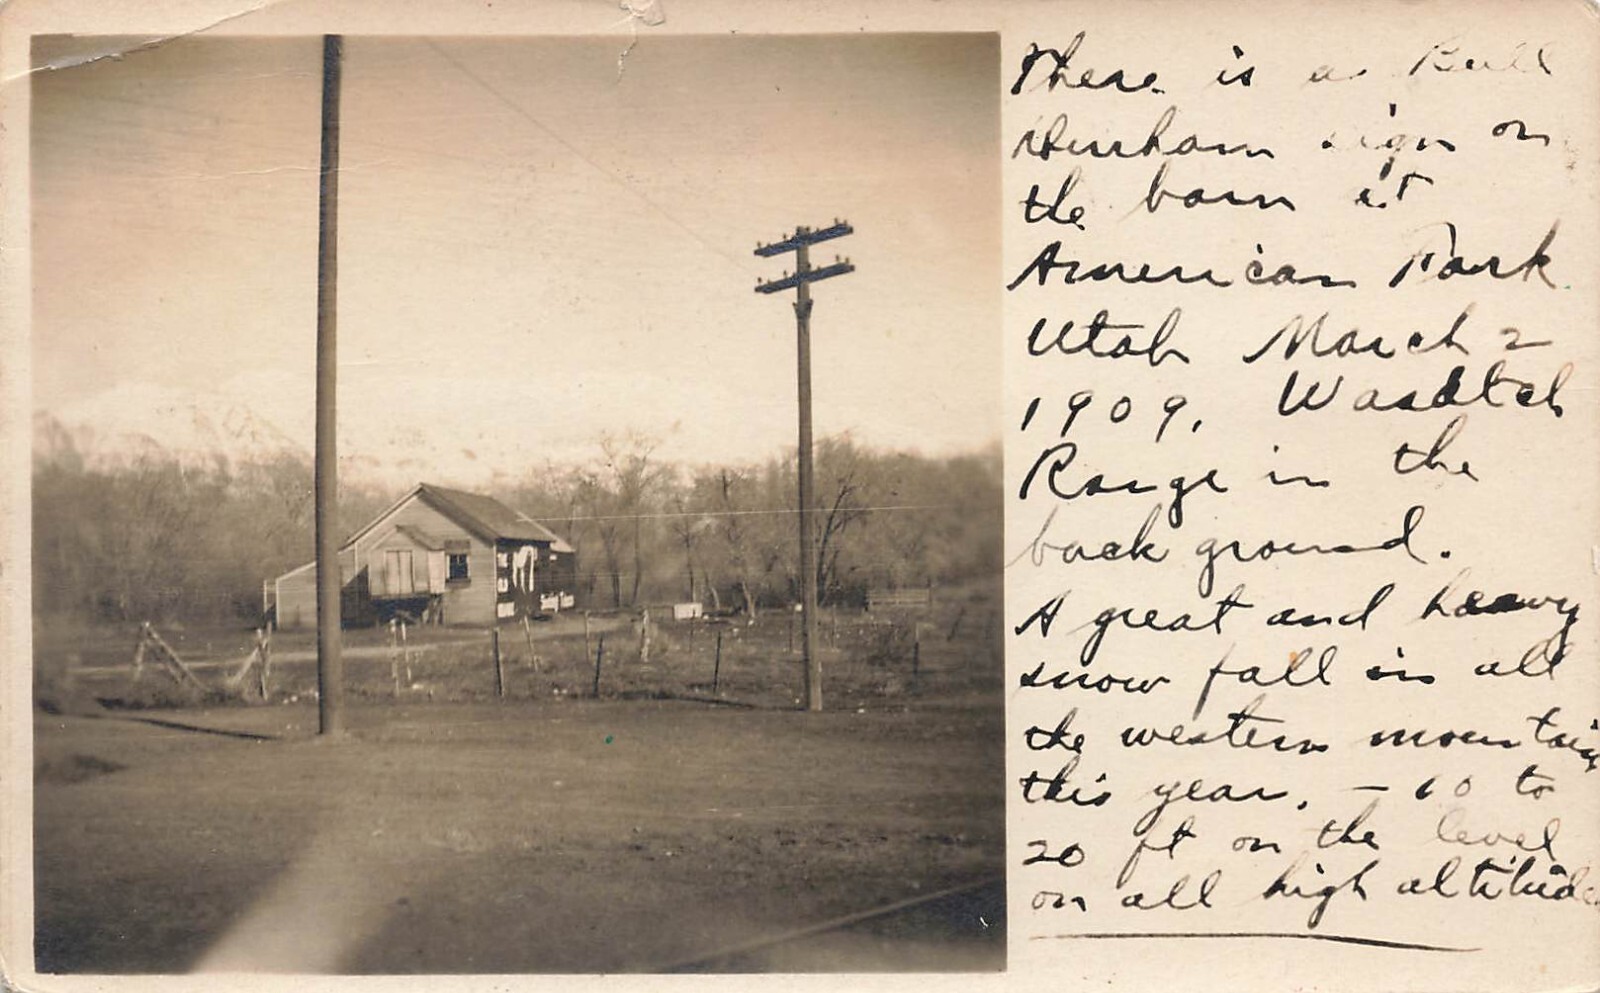 There is a Bull
Durham sign on
the barn at
American Fork
Utah March 2
1909. Wasatch
Range in the
back ground.
A great and heavy
snow fall in all
the western mountains
this year. - 10 to
20 ft on the level
on all high altitudes